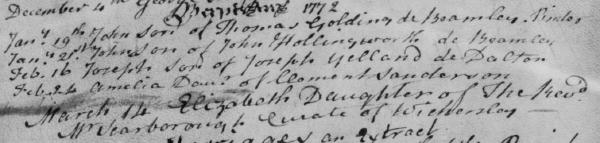 December 4th George
Baptisms 1772
Jany 19th John son of Thomas Golding de Bramley
Jany 21st John son of John Hollingworth de Bramley
Feb. 16 Joseph Son of Joseph Yelland de Dalton
Feb. 24 Amelia Daur. of Clement Sanderson
March 14 Elizabeth Daughter of The Revd
Mr Scarborough Curate of Wickersley
an Extract